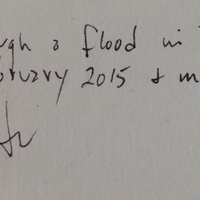 ugh a flood in
bruary 2015 & m